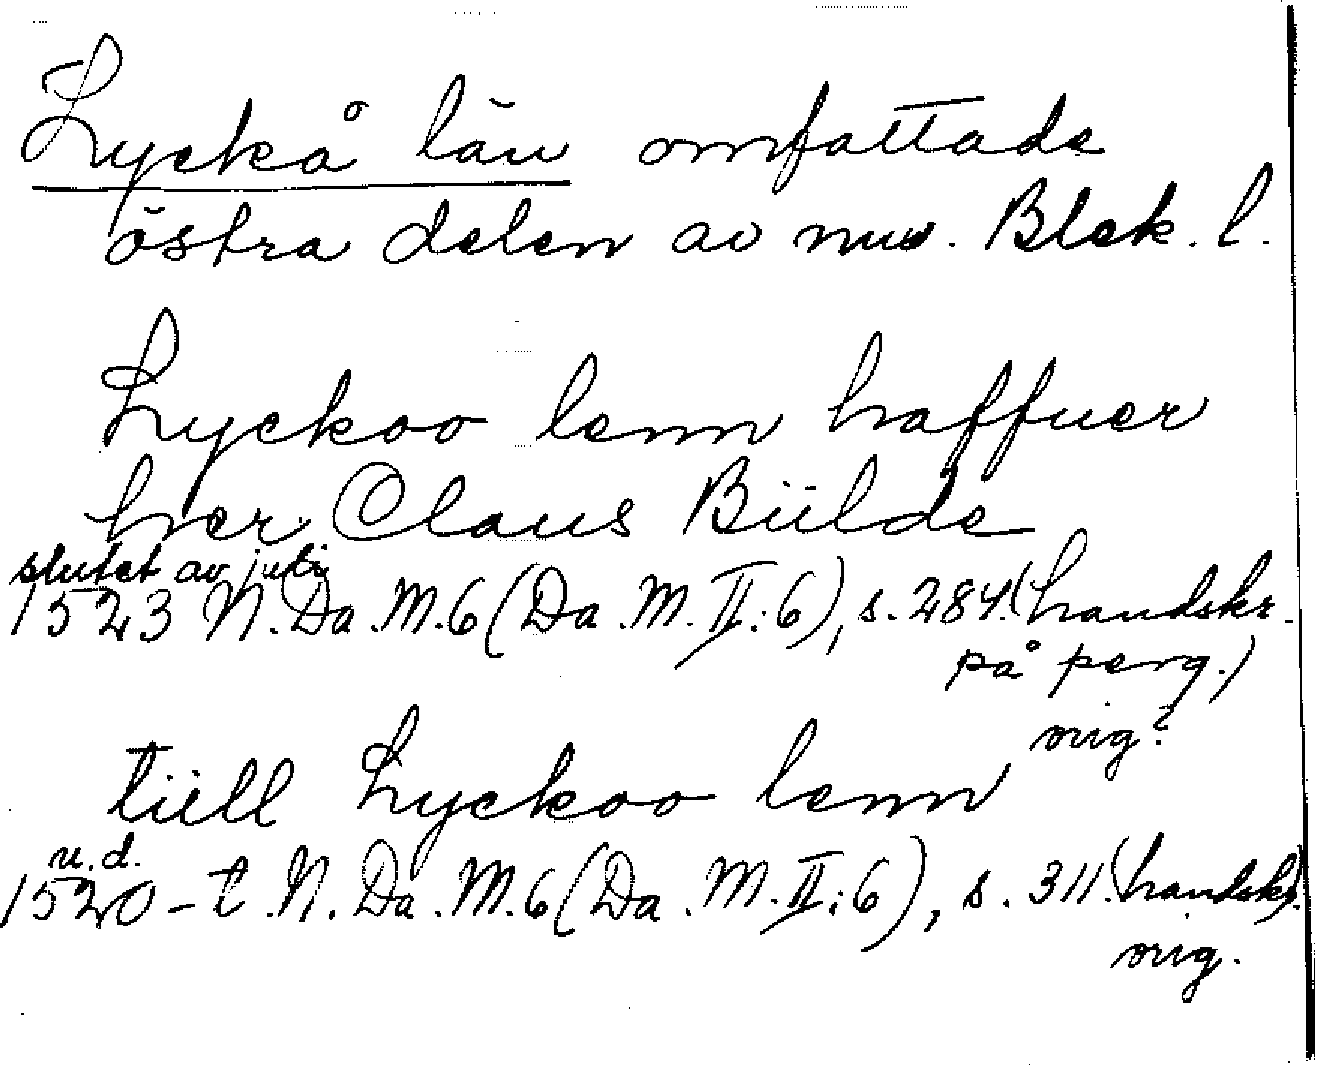 Lyckå län omfattade
östra delen av nuv. Blek. l.
Lyckoo lenn haffuer
her Claus Biilde
slutet av juli
1523 N. Da. M. 6 (Da. M. II: 6), s. 284. (handskr.
på perg.)
orig.?
tiill Lyckoo lenn
u. d.
1520-t. N. Da. M. 6 (Da. M. II: 6), s. 311. (handskr.)
orig.